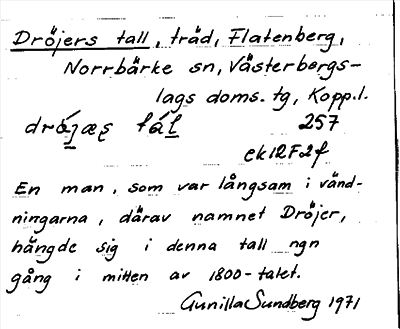 Dröjers tall, träd, Flatenberg,
Norrbärke sn, Västerbergs-
lags doms. tg, Kopp.l.
257
ek12F2f
En man, som var långsam i vänd-
ningarna, därav namnet Dröjer,
hängde sig i denna tall ngn
gång i mitten av 1800-talet.
Gunilla Sundberg 1971